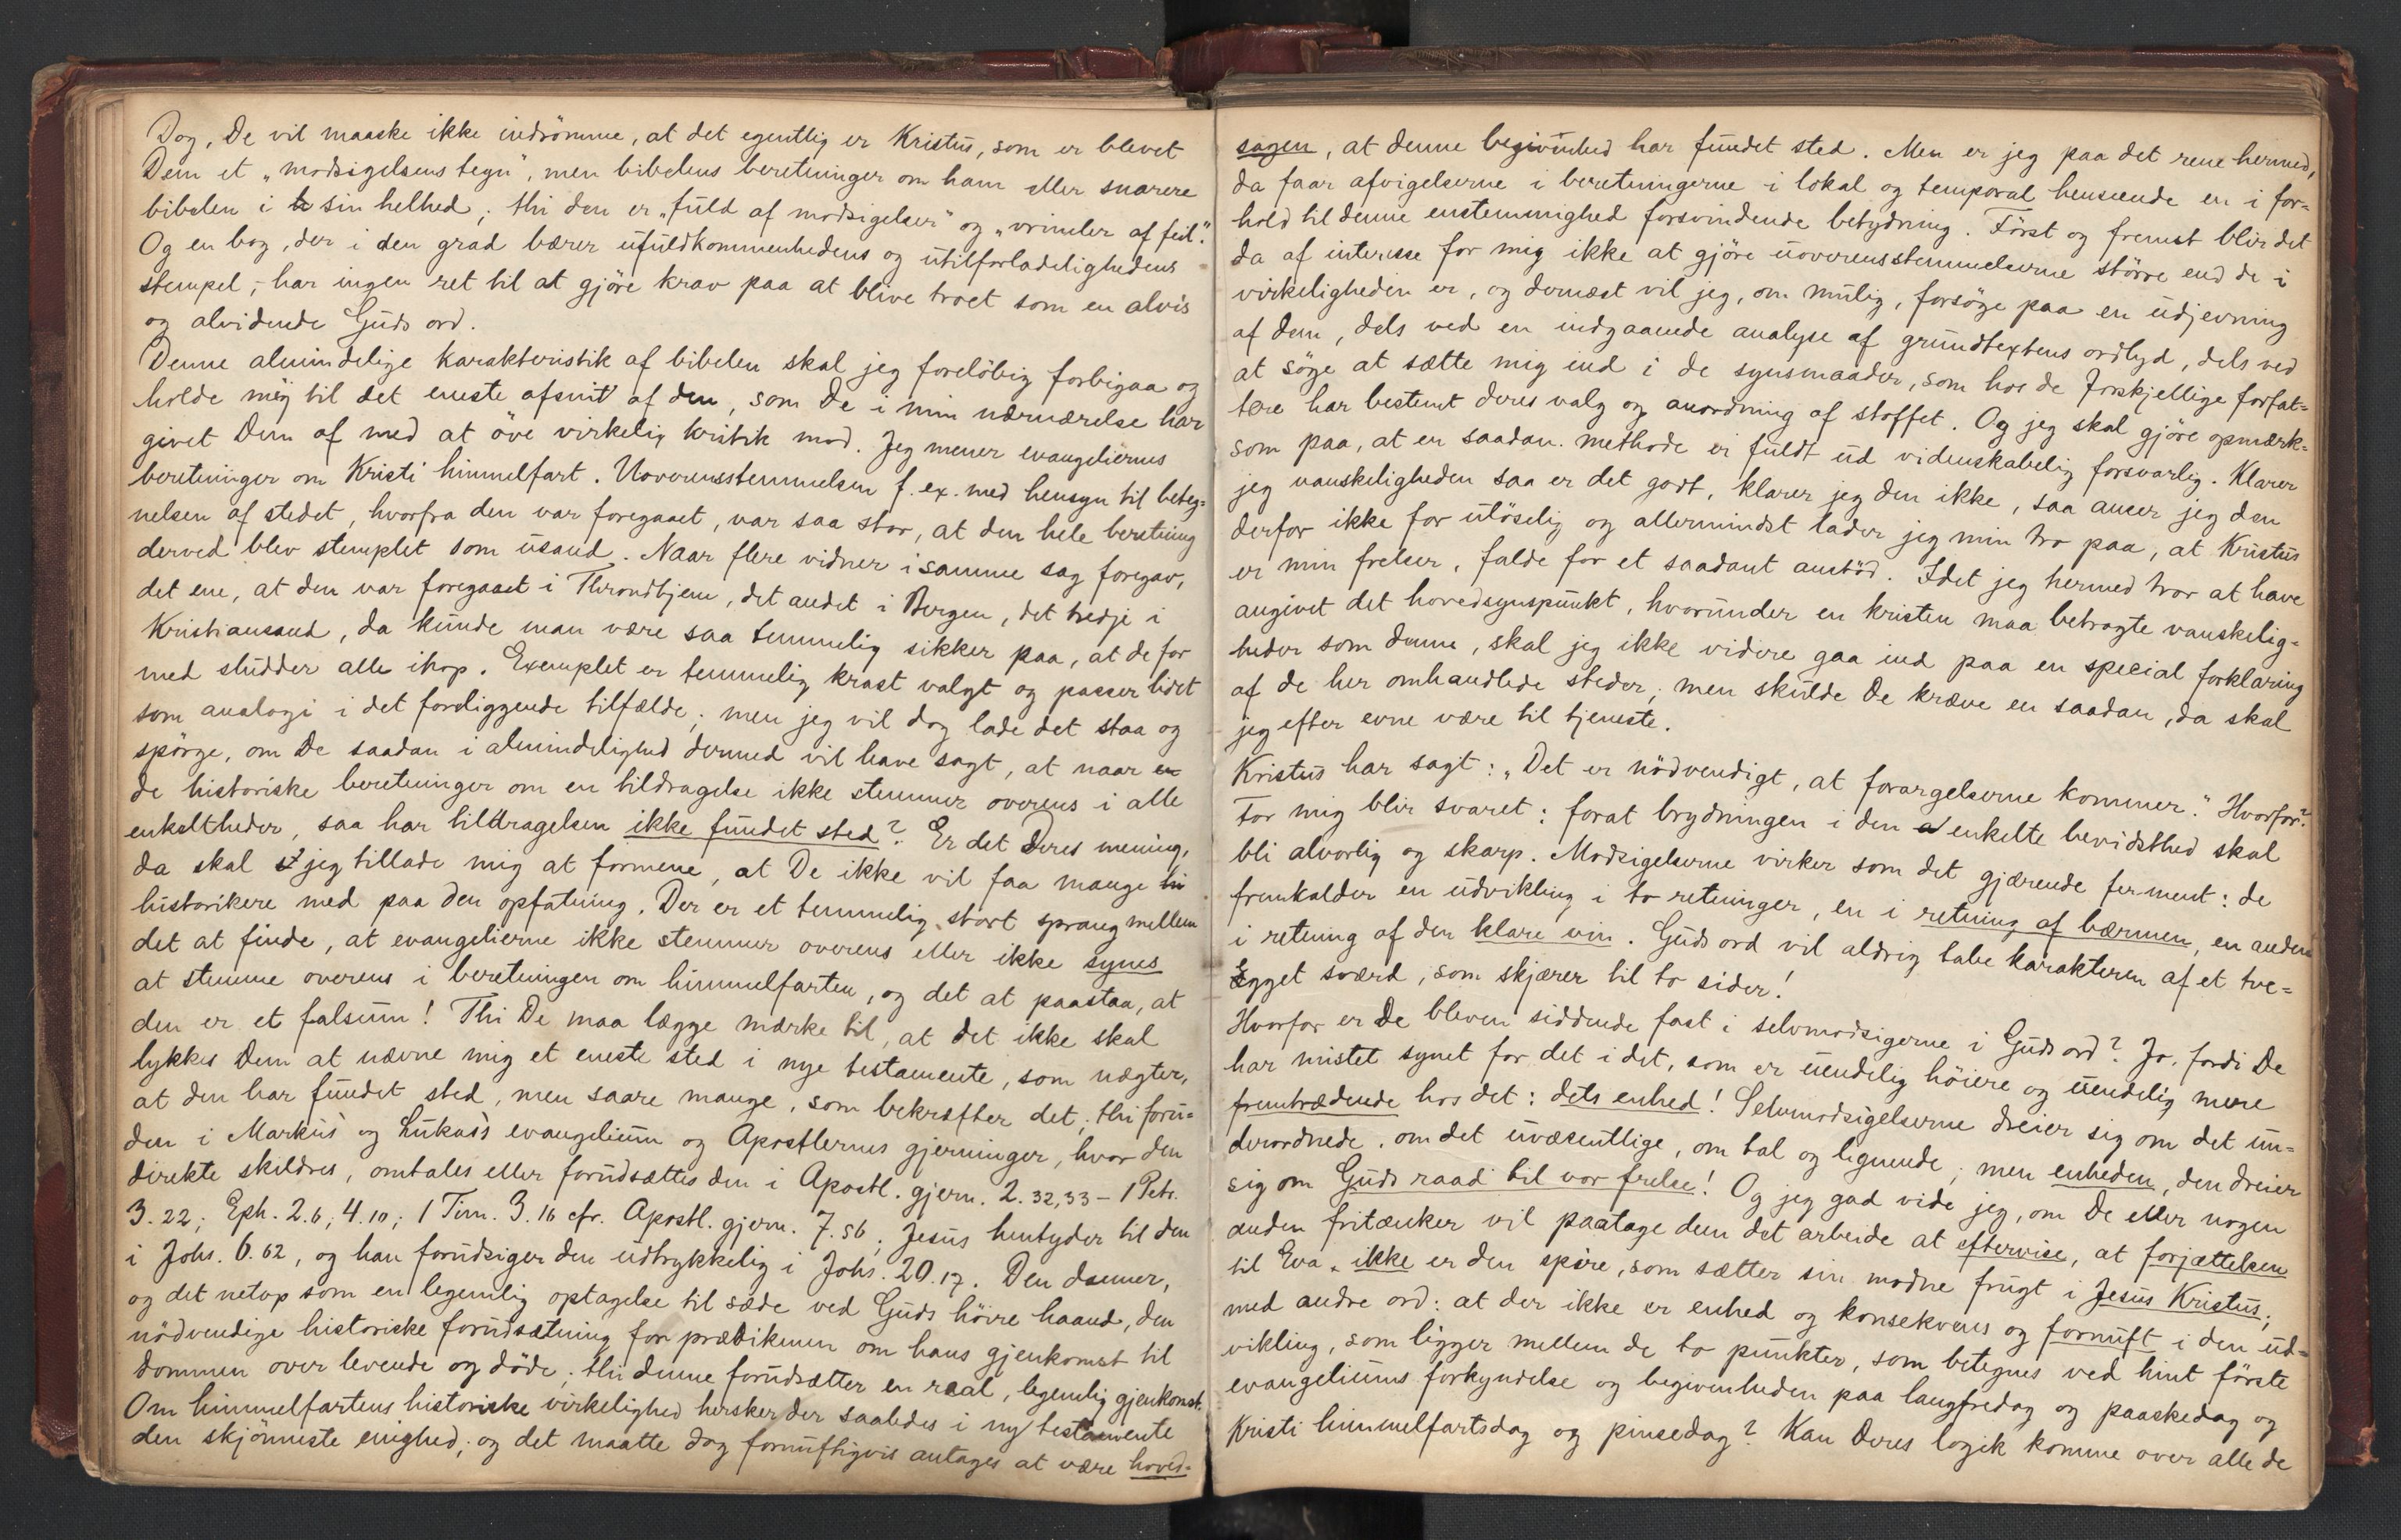 Dog, De vil maaske ikke indrömme, at det egentlig er Kristus, som er blevet
Dem et „modsigelsens tegn", men bibelens beretninger om ham eller snarere
bibelen i sin helhed; thi den er „fuld af modsigelser" og „vrimler af feil".
Og en bog, der i den grad bærer ufuldkommenhedens og utilforladelighedens
stempel, har ingen ret til at gjöre krav paa at blive troet som en alvis
og alvidende Guds ord.
Denne almindelige karakteristik af bibelen skal jeg forelöbig forbigaa og
holde mig til det eneste afsnit af den, som De i min nærværelse har
givet Dem af med at öve virkelig kritik mod. Jeg mener evangeliernes
beretninger om Kristi himmelfart. Uoverensstemmelsen f. ex. med hensyn til beteg=
nelsen af stedet, hvorfra den var foregaaet, var saa stor, at den hele beretning
derved blev stemplet som usand. Naar flere vidner i samme sag foregav,
det ene, at den var foregaaet i Throndhjem, det andet i Bergen, det tredje i
Kristiansand, da kunde man være saa temmelig sikker paa, at de for
med sludder alle ihop. Exemplet er temmelig krast valgt og passer lidet
som analogi i det foreliggende tilfælde; men jeg vil dog lade det staa og
spörge, om De saadan i almindelighed dermed vil have sagt, at naar
de historiske beretninger om en tildragelse ikke stemmer overens i alle
enkeltheder, saa har tildragelsen ikke fundet sted? Er det Deres mening,
da skal jeg tillade mig at formene, at De ikke vil faa mange
historikere med paa den opfatning. Der er et temmelig stort sprang mellem
det at finde, at evangelierne ikke stemmer overens eller ikke synes
at stemme overens i beretningen om himmelfarten, og det at paastaa, at
den er et falsum! Thi De maa lægge mærke til, at det ikke skal
lykkes Dem at nævne mig et eneste sted i nye testamente, som nægter,
at den har fundet sted, men saare mange, som bekræfter det; thi foru=
den i Markus og Lukas's evangelium og Apostlernes gjerninger, hvor den
direkte skildres, omtales eller forudsættes den i Apostl. gjern. 2. 32,33 – 1 Petr.
3. 22; Eph. 2.6; 4.10; 1 Tim. 3.16 cfr. Apostl. gjern. 7.56; Jesus hentyder til den
i Johs. 6.62, og han forudsiger den udtrykkelig i Johs. 20.17. Den danner,
og det netop som en legemlig optagelse til sæde ved Guds höire haand, den
nödvendige historiske forudsætning for prædikenen om hans gjenkomst til
dommen over levende og döde; thi denne forudsætter en real, legemlig gjenkomst.
Om himmelfartens historiske virkelighed hersker der saaledes i ny testamente
den skjönneste enighed; og det maatte dog fornuftigvis antages at være hoved=
sagen, at denne begivenhed har fundet sted. Men er jeg paa det rene hermed,
da faar afvigelserne i beretningerne i lokal og temporal henseende en i for=
hold til denne enstemmighed forsvindende betydning. Först og fremst blir det
da af interesse for mig ikke at gjöre uoverensstemmelserne större end de i
virkeligheden er, og dernæst vil jeg, om mulig, forsöge paa en udjevning
af dem, dels ved en indgaaende analyse af grundtextens ordlyd, dels ved
at söge at sætte mig ind i de synsmaader, som hos de forskjellige forfat=
tere har bestemt deres valg og anordning af stoffet. Og jeg skal gjöre opmærk=
som paa, at en saadan methode er fuldt ud videnskabelig forsvarlig. Klarer
jeg vanskeligheden saa er det godt, klarer jeg den ikke, saa anser jeg den
derfor ikke for ulöselig og allermindst lader jeg min tro paa, at Kristus
er min frelser, falde for et saadant anstöd. Idet jeg hermed tror at have
angivet det hovedsynspunkt, hvorunder en kristen maa betragte vanskelig=
heder som denne, skal jeg ikke videre gaa ind paa en special forklaring
af de her omhandlede steder; men skulde De kræve en saadan, da skal
jeg efter evne være til tjeneste.
Kristus har sagt: „Det er nödvendigt, at forargelserne kommer." Hvorfor?
For mig blir svaret: forat brydningen i den enkelte bevidsthed skal
bli alvorlig og skarp. Modsigelserne virker som det gjærende ferment: de
fremkalder en udvikling i to retninger, en i retning af bærmen, en anden
i retning af den klare vin. Guds ord vil aldrig tabe karakteren af et tve=
egget sværd, som skjærer til to sider!
Hvorfor er De bleven siddende fast i selvmodsigerne i Guds ord? Jo, fordi De
har mistet synet for det i det, som er uendelig höiere og uendelig mere
fremtrædende hos det: dets enhed! Selvmodsigelserne dreier sig om det un=
derordnede, om det uvæsentlige, om tal og lignende; men enheden, den dreier
sig om Guds raad til vor frelse! Og jeg gad vide jeg, om De eller nogen
anden fritænker vil paatage dem det arbeide at eftervise, at forjættelsen
til Eva ikke er den spire, som sætter sin modne frugt i Jesus Kristus;
med andre ord: at der ikke er enhed og konsekvens og fornuft i den ud=
vikling, som ligger mellem de to punkter, som betegnes ved hint förste
evangeliums forkyndelse og begivenheden paa langfredag og paaskedag og
Kristi himmelfartsdag og pinsedag? Kan Deres logik komme over alle de